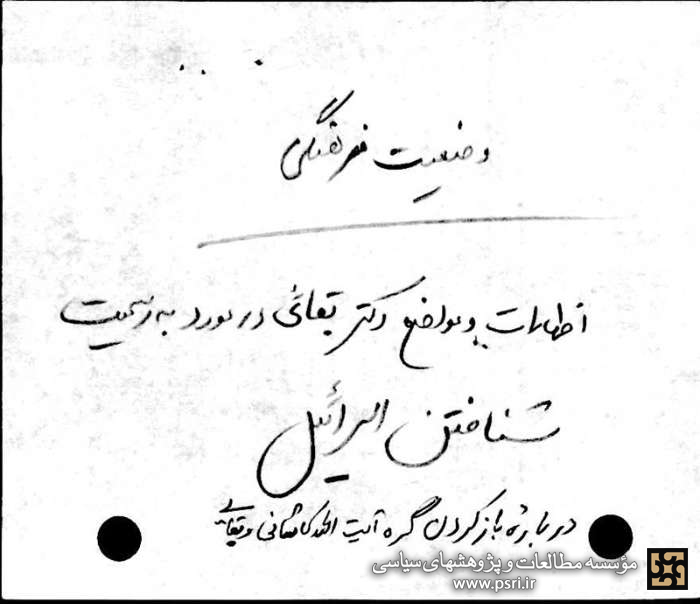 وضعیت فرهنگی
اظهارات و مواضع دکتر بقائی در مورد به رسمیت
شناختن اسرائیل
درباره باز کردن گره آیت الله کاشانی و بقایی
مؤسسه مطالعات و پژوهشهای سیاسی
www.psri.ir